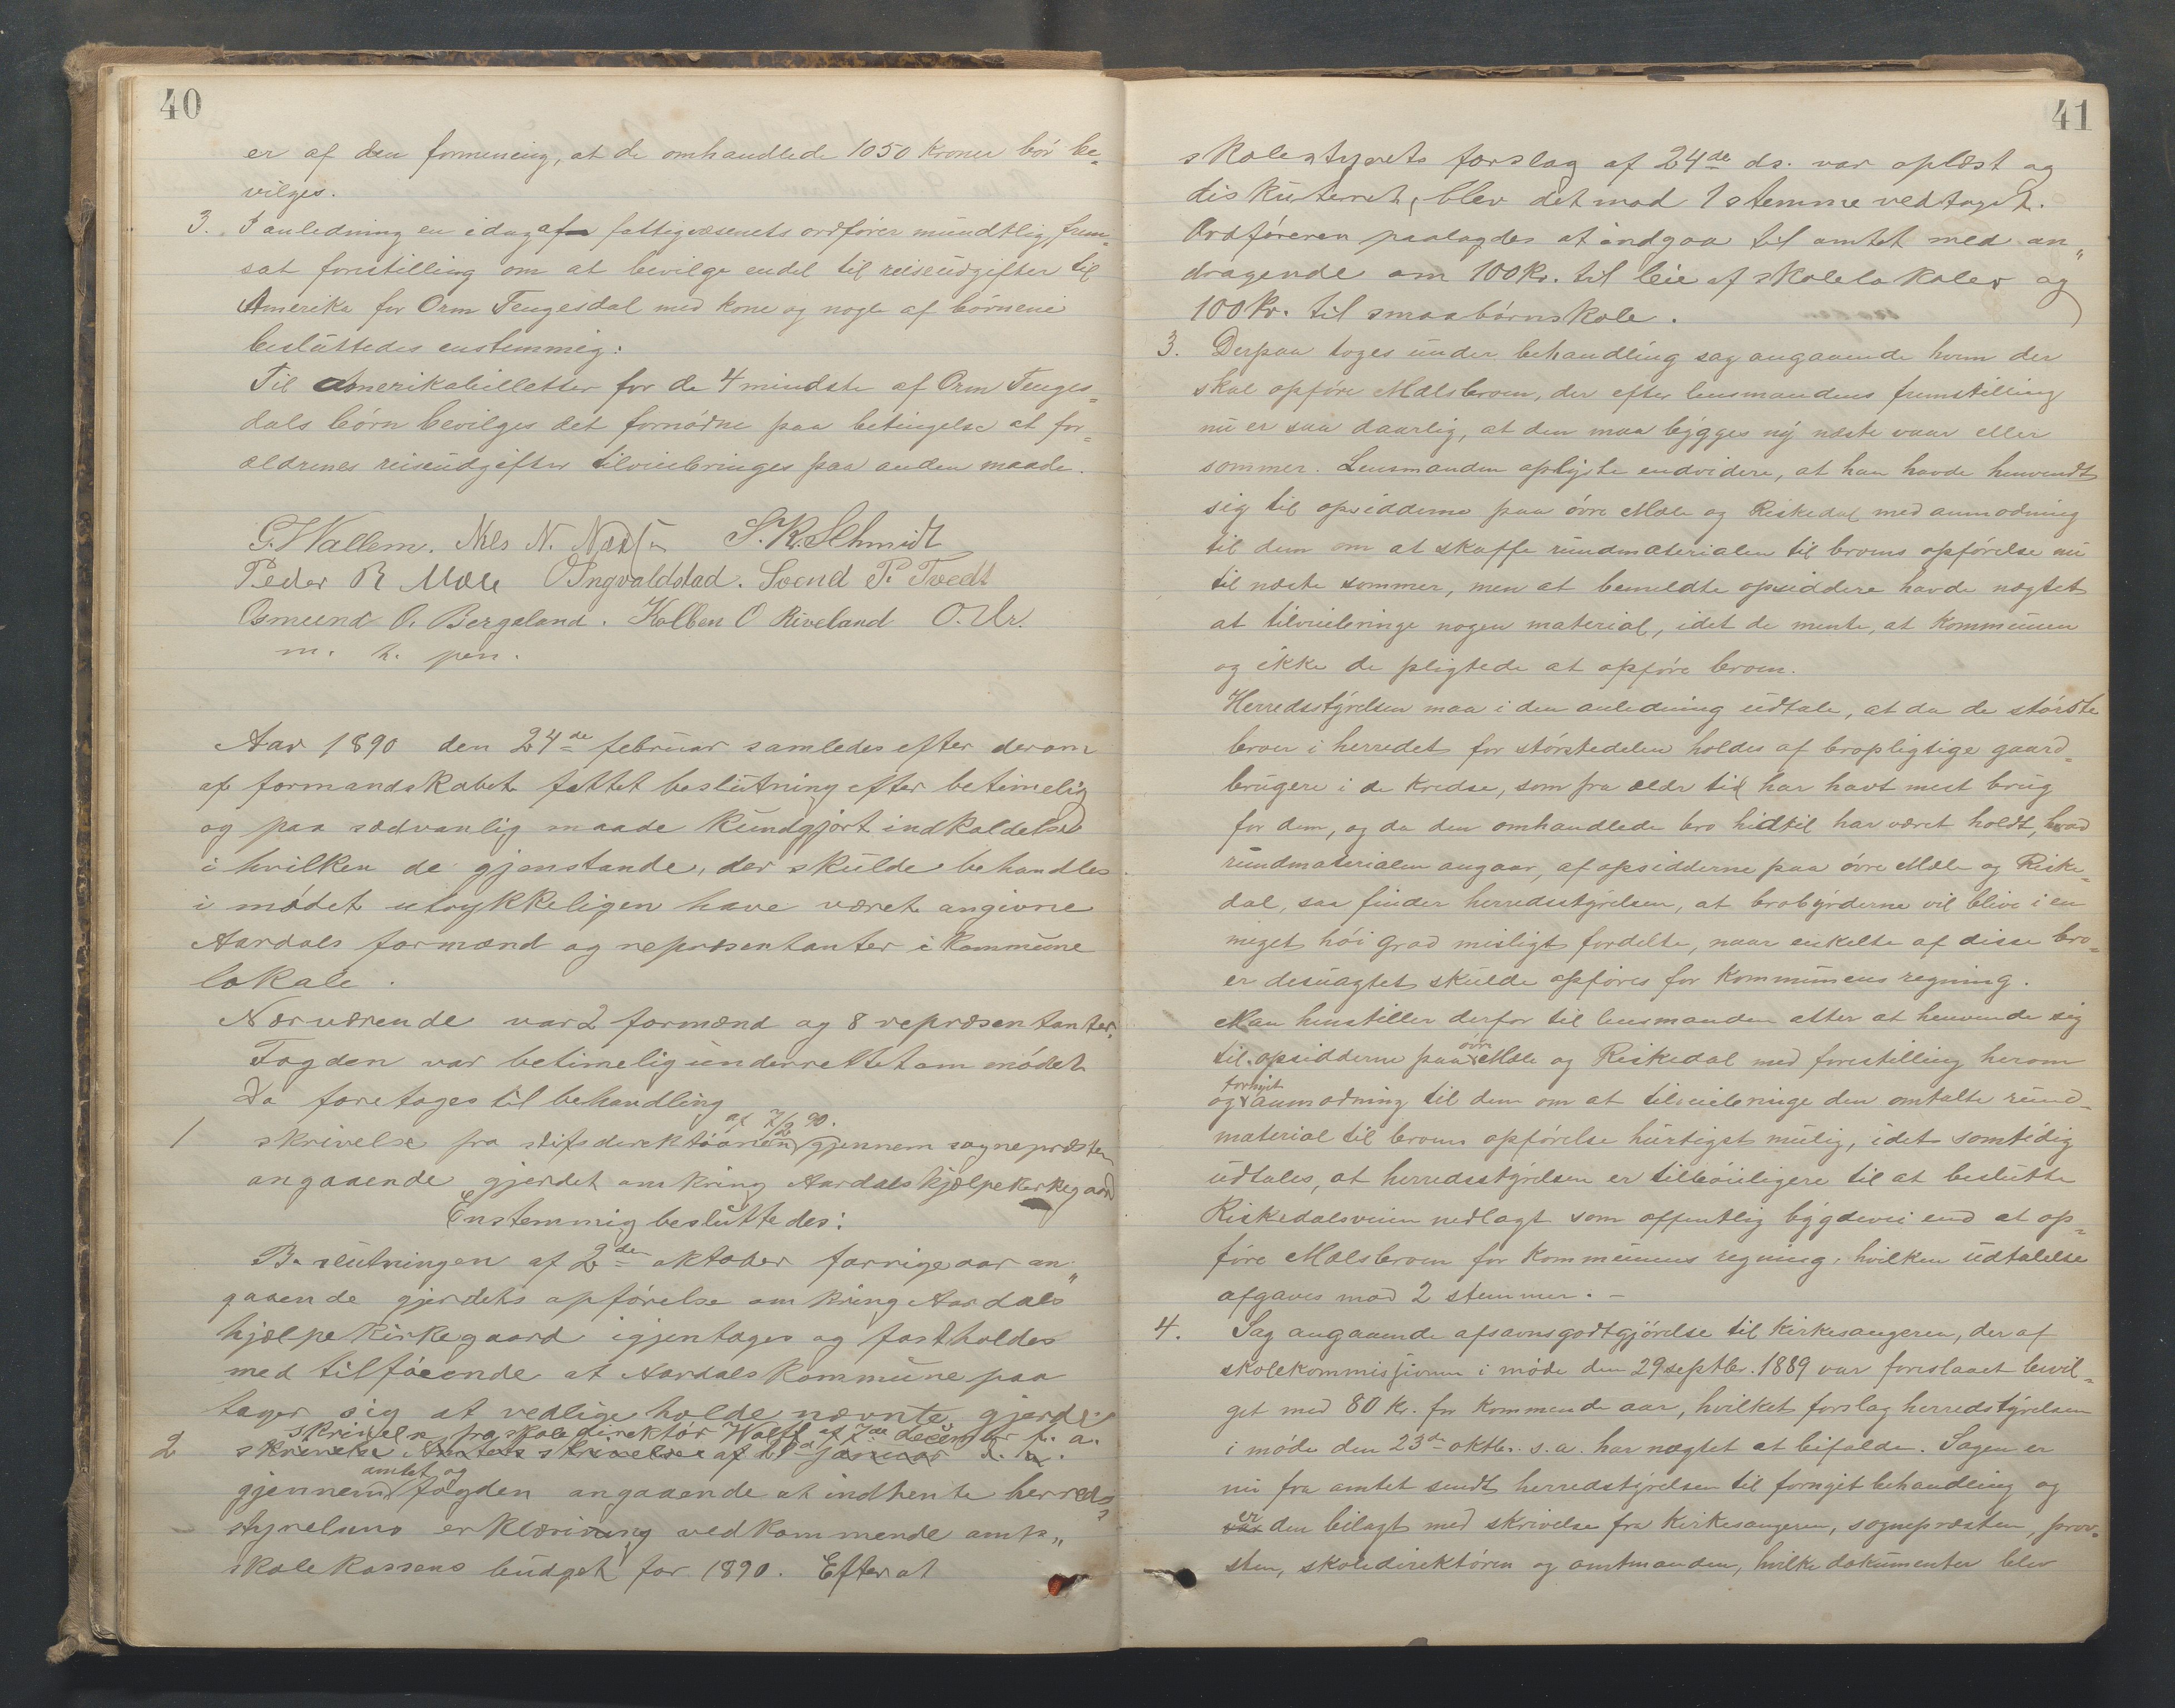 40
er af den formening, at de omhandlede 1050 kroner bør be=
vilges.
3. I anledning en idag af fattigvæsenets ordfører mundtlig frem=
sat forestilling om at bevilge endel til reiseudgifter til
Amerika for Orm Tengesdal med kone og nogle af børnene
besluttedes enstemmig:
Til Amerikabilletter for de 4 mindste af Orm Tenges=
dals børn bevilges det fornødne paa betingelse at for=
ældrenes reiseudgifter tilveiebringes paa anden maade.
G. Wallem. Nils N. S. K. Schmidt
Peder R Mæle O Ingvaldstad. Svend P. Tvedt
Osmund O. Bergeland. Kolben O Riveland O. Ur.
m. h. pen.
Aar 1890 den 24de februar samledes efter derom
af formandskabet fattet beslutning efter betimelig
og paa sædvanlig maade kundgjort indkaldelse
i hvilken de gjenstande, der skulde behandles
i mødet utrykkeligen have været angivne
Aardals formænd og repræsentanter i kommune
lokale.
Nærværende var 2 formænd og 8 repræsentanter.
Fogden var betimelig underrettet om mødet
Da foretoges til behandling
1 skrivelse fra stifsdirektionen af 7/2 90. gjennem sognepræsten
angaaende gjerdet omkring Aardals hjælpekirkegaard
Enstemmig besluttedes:
Beslutningen af 2den oktober forrige aar an„
gaaende gjerdets opførelse omkring Aardals
hjælpekirkegaard igjentages og fastholdes
med tilføiende at Aardals kommune paa
tager sig at vedlige holde nævnte gjerde.
skriveln fra skoledirektør Wolff af 7de december f. a.
2 skrivelse Amtets skrivelse af 21de januar d. a.
gjennem amtet og fogden angaaende at indhente herreds=
styrelsens erklæring vedkommende amts„
skolekassens budget for 1890. Efterat
41
skolestyrets forslag af 24de ds. var oplæst og
diskuterret, blev det mod 1 stemme vedtaget.
Ordføreren paalagdes at indgaa til amtet med an„
dragende om 100 kr. til leie af skolelokaler og
100 kr. til smaabørnskole.
3. Derpaa toges under behandling sag angaaende hvem der
skal opføre Mælsbroen, der efter lensmandens fremstilling
nu er saa daarlig, at den maa bygges ny næste vaar eller
sommer. Lensmanden oplyste endvidere, at han havde henvendt
sig til opsidderne paa øvre Mæle og Riskedal med anmodning
til dem om at skaffe rundmaterialen til broens opførelse nu
til næste sommer, men at bemeldte opsiddere havde nægtet
at tilveiebringe nogen material, idet de mente, at kommunen
og ikke de pligtede at opføre broen.
Herredsstyrelsen maa i den anledning udtale, at da de største
broer i herredet for størstedelen holdes af bropligtige gaard=
brugere i de kredse, som fra ældr tid har havt mest brug
for dem, og da den omhandlede bro hidtil har været holdt, hvad
rundmaterialen angaar, af opsidderne paa øvre Mæle og Riske=
dal, saa finder herredsstyrelsen, at brobyrderne vil blive i en
meget høi grad misligt fordelte, naar enkelte af disse bro=
er desuagtet skulde opføres for kommunens regning.
Man henstiller derfor til lensmanden atter at henvende sig
til opsidderne paa øvre Mæle og Riskedal med forestilling herom
og fornyet anmodning til dem om at tilveiebringe den omtalte rund=
material til broens opførelse hurtigst mulig, idet samtidig
udtales, at herredsstyrelsen er tilbøieligere til at beslutte
Riskedalsveien nedlagt som offentlig bygdevei end at op=
føre Mælsbroen for kommunens regning, hvilken udtalelse
afgaves mod 2 stemmer. –
4. Sag angaaende afsavnsgodtgjørelse til kirkesangeren, der af
skolekommissjonen i møde den 29 septbr. 1889 var foreslaaet bevil=
get med 80 kr. for kommende aar, hvilket forslag herredstyrelsen
i møde den 23de oktbr. s. a. har nægtet at bifalde. Sagen er
nu fra amtet sendt herredstyrelsen til fornyet behandling og
er den bilagt med skrivelse fra kirkesangeren, sognepræsten, prov=
sten, skoledirektøren og amtmanden, hvilke dokumenter blev